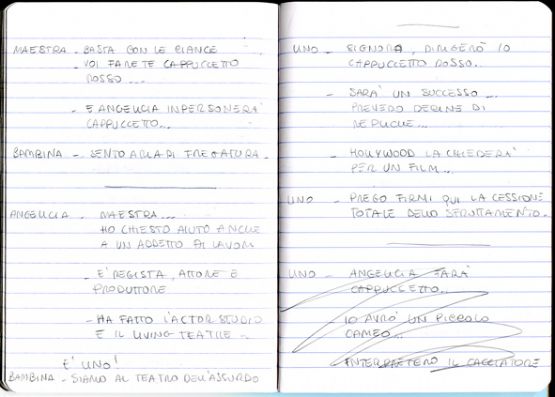 MAESTRA - BASTA CON LE CIANCE
- VOI FARETE CAPPUCCETTO
ROSSO...
- E ANGELICIA IMPERSONERA'
CAPPUCCETTO...
BAMBINA - SENTO ARIA DI FREGATURA.
ANGELICIA - MAESTRA...
HO CHIESTO AIUTO ANCHE
A UN ADDETTO AI LAVORI
- E' REGISTA, ATTORE E
PRODUTTORE
- HA FATTO L'ACTOR STUDIO
E IL LIVING TEATRE -
E' UNO!
BAMBINA - SIAMO AL TEATRO DELL'ASSURDO
UNO - SIGNORA, DIRIGERÒ IO
CAPPUCCETTO ROSSO...
- SARA' UN SUCCESSO...
PREVEDO DECINE DI
REPLICHE...
- HOLLYWOOD LA CHIEDERA'
PER UN FILM...
UNO - PREGO FIRMI QUI LA CESSIONE
TOTALE DELLO SFRUTTAMENTO.
UNO - ANGELICIA SARA'
CAPPUCCETTO...
- IO AVRO' UN PICCOLO
CAMEO...
- INTERPRETERO IL CACCIATORE